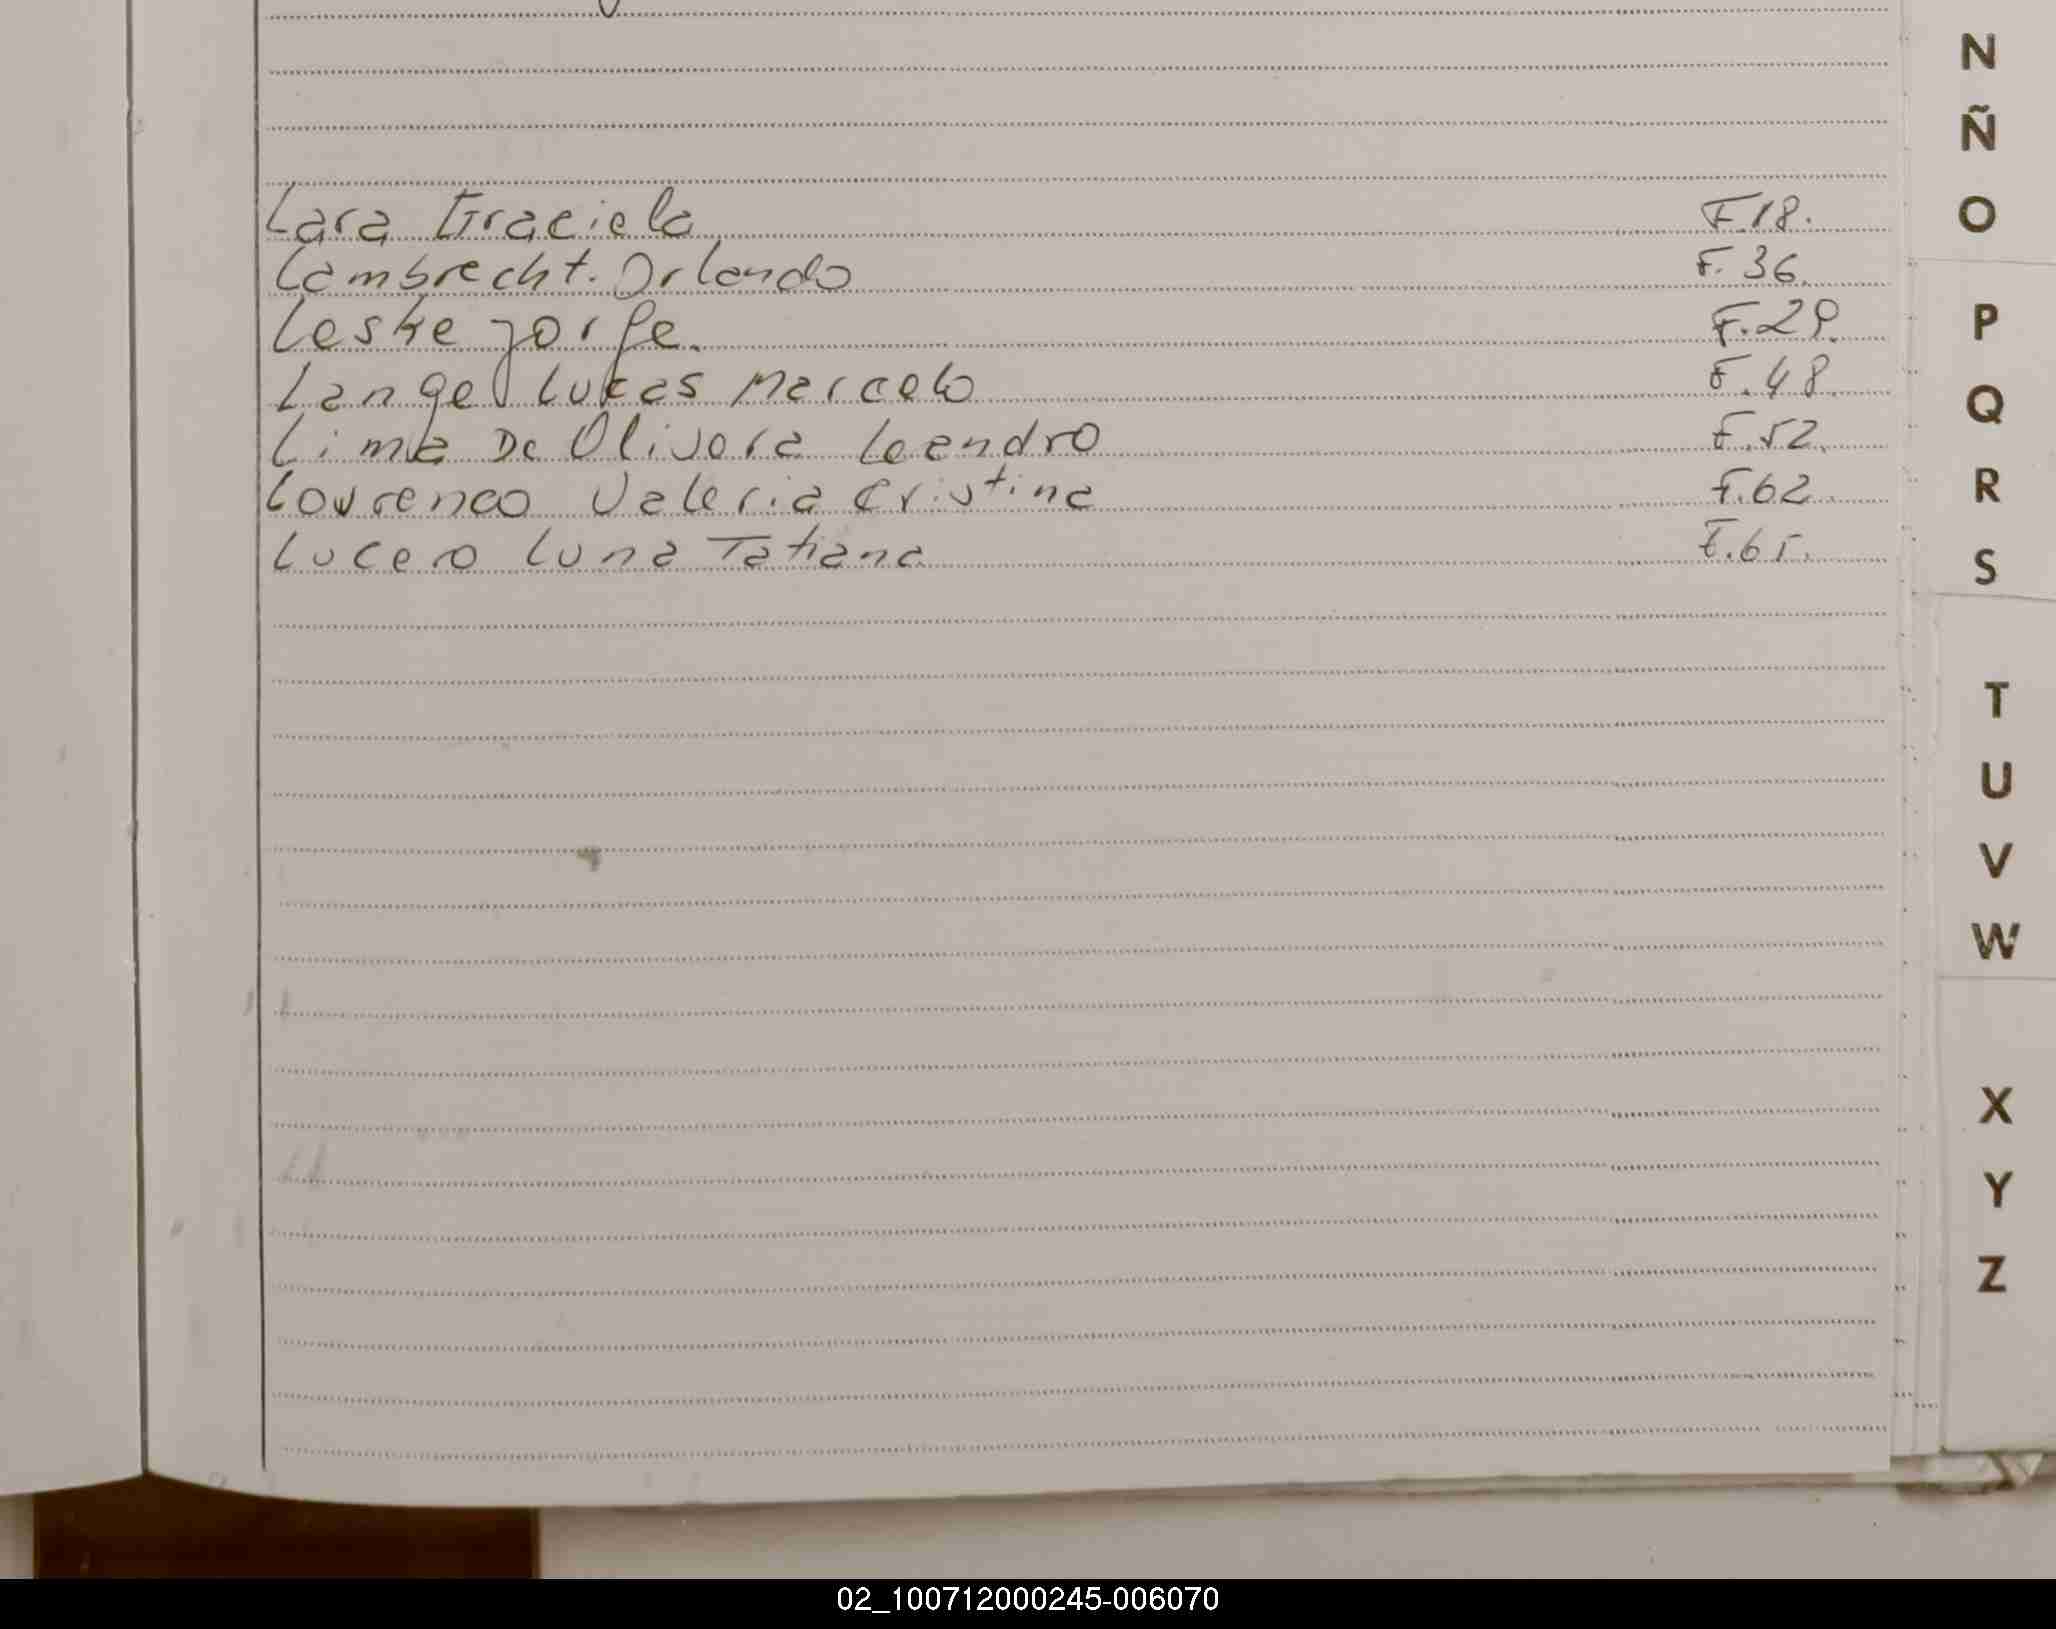 Lara Graciela F.18.
Lambrecht. Orlando F. 36.
Leske Jorge. F.29.
Lange Lucas Marcelo F.48.
Lima De Olivera Leandro F.52.
Lourenco Valeria Cristina F.62.
Lucero Luna Tatiana F.65.
N
Ñ
O
P
Q
R
S
T
U
V
W
X
Y
Z
02_100712000245-006070